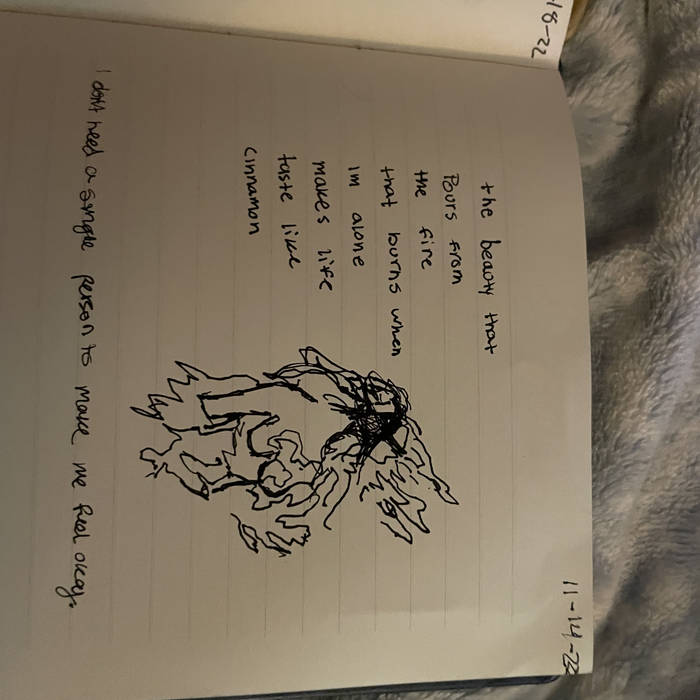 18-22
11-14-22
the beauty that
Pours from
the fire
that burns when
im alone
makes life
taste like
cinnamon
I don't need a single person to make me feel okay.